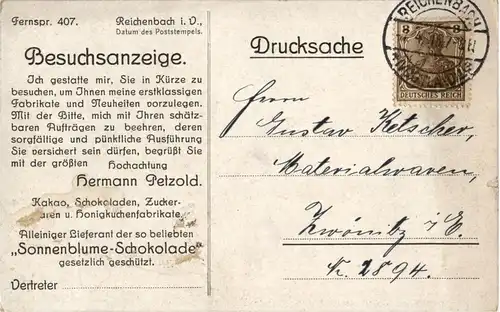 Fernspr. 407. Reichenbach i. V.,
Datum des Poststempels.
Besuchsanzeige.
Ich gestatte mir, Sie in Kürze zu
besuchen, um Ihnen meine erstklassigen
Fabrikate und Neuheiten vorzulegen.
Mit der Bitte, mich mit Ihren schätz-
baren Aufträgen zu beehren, deren
sorgfältige und pünktliche Ausführung
Sie versichert sein dürfen, begrüßt Sie
mit der größten Hochachtung
Hermann Petzold.
Kakao, Schokoladen, Zucker-
waren u. Honigkuchenfabrikate
Alleiniger Lieferant der so beliebten
„Sonnenblume-Schokolade"
gesetzlich geschützt.
Vertreter
Drucksache
REICHENBACH
8 8
DEUTSCHES REICH
Herrn
Gustav Ketscher,
Materialwaren,
Zwönitz i/E.
Nr. 2894.